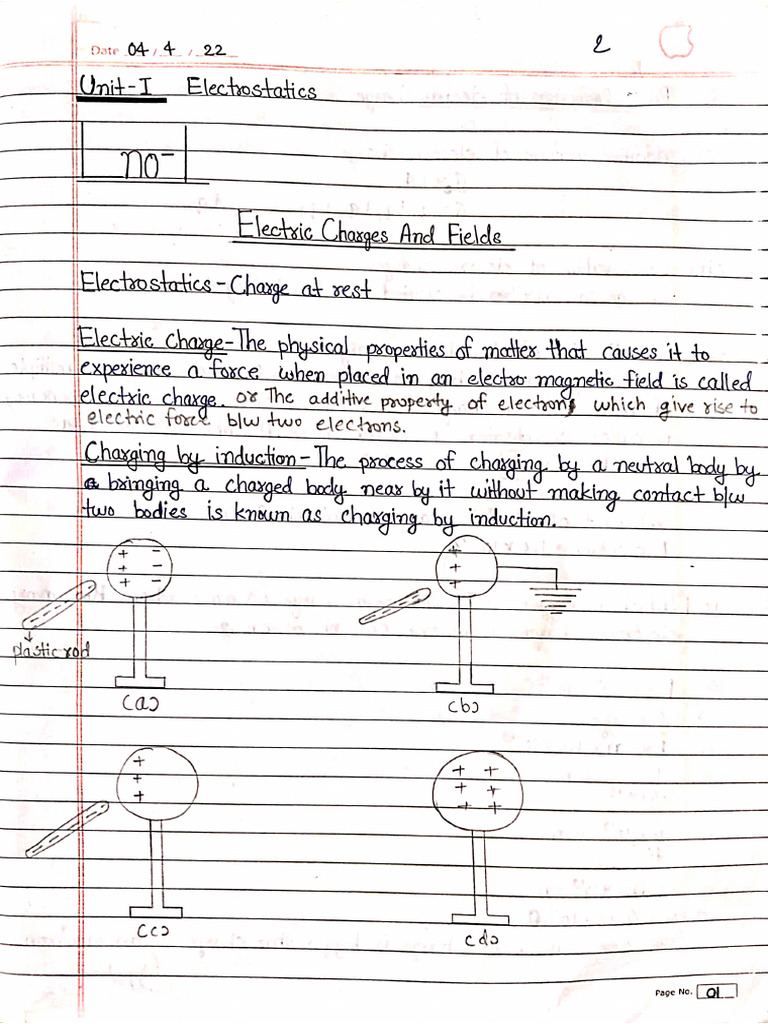 Date 04 / 4 / 22
2
Unit-I Electrostatics
no-
Electric Charges And Fields
Electrostatics - Charge at rest
Electric Charge - The physical properties of matter that causes it to
experience a force when placed in an electro magnetic field is called
electric charge. or The additive property of electrons which give rise to
electric force b/w two electrons.
Charging by induction - The process of charging by a neutral body by
bringing a charged body near by it without making contact b/w
two bodies is known as charging by induction.
+ - + 
+ - +
+ - +
plastic rod
(a) (b)
+ + +
+ + +
+ + +
(c) (d)
Page No. 01